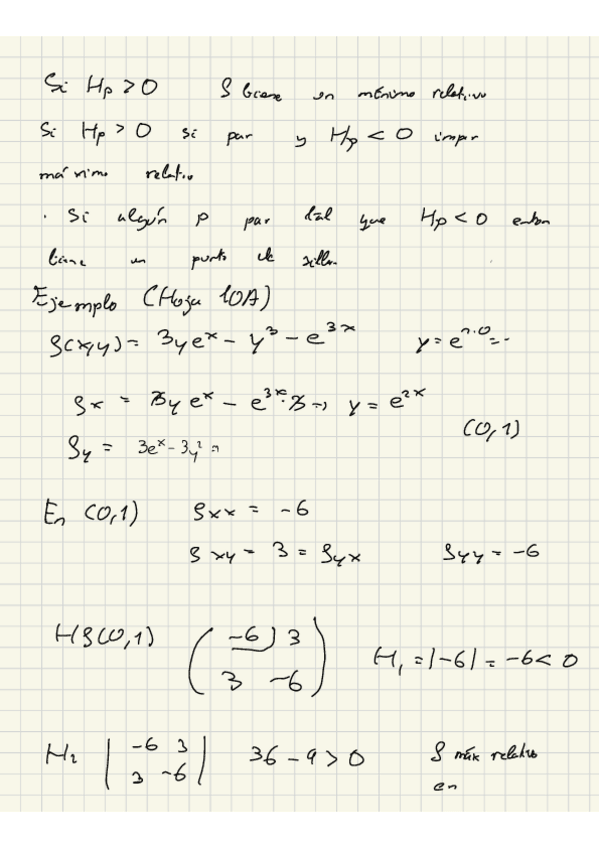 Si Hp > 0 f tiene un mínimo relativo
Si Hp > 0 si par y Hp < 0 impar
máximo relativo
· Si algún p par tal que Hp < 0 enton
tiene un punto de silla
Ejemplo (Hoja 10A)
f(x,y) = 3ye^x - y^3 - e^{3x} y = e^{2·0} = ..
fx = 3y e^x - e^{3x}·3 => y = e^{2x}
(0,1)
fy = 3e^x - 3y^2 =
En (0,1) fxx = -6
fxy = 3 = fyx fyy = -6
Hf(0,1) ( -6 3
3 -6 ) H₁ = |-6| = -6 < 0
H₂ | -6 3
3 -6 | 36 - 9 > 0 f máx relativo
en